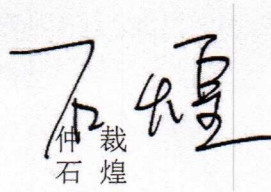 石煌
仲 裁
石 煌